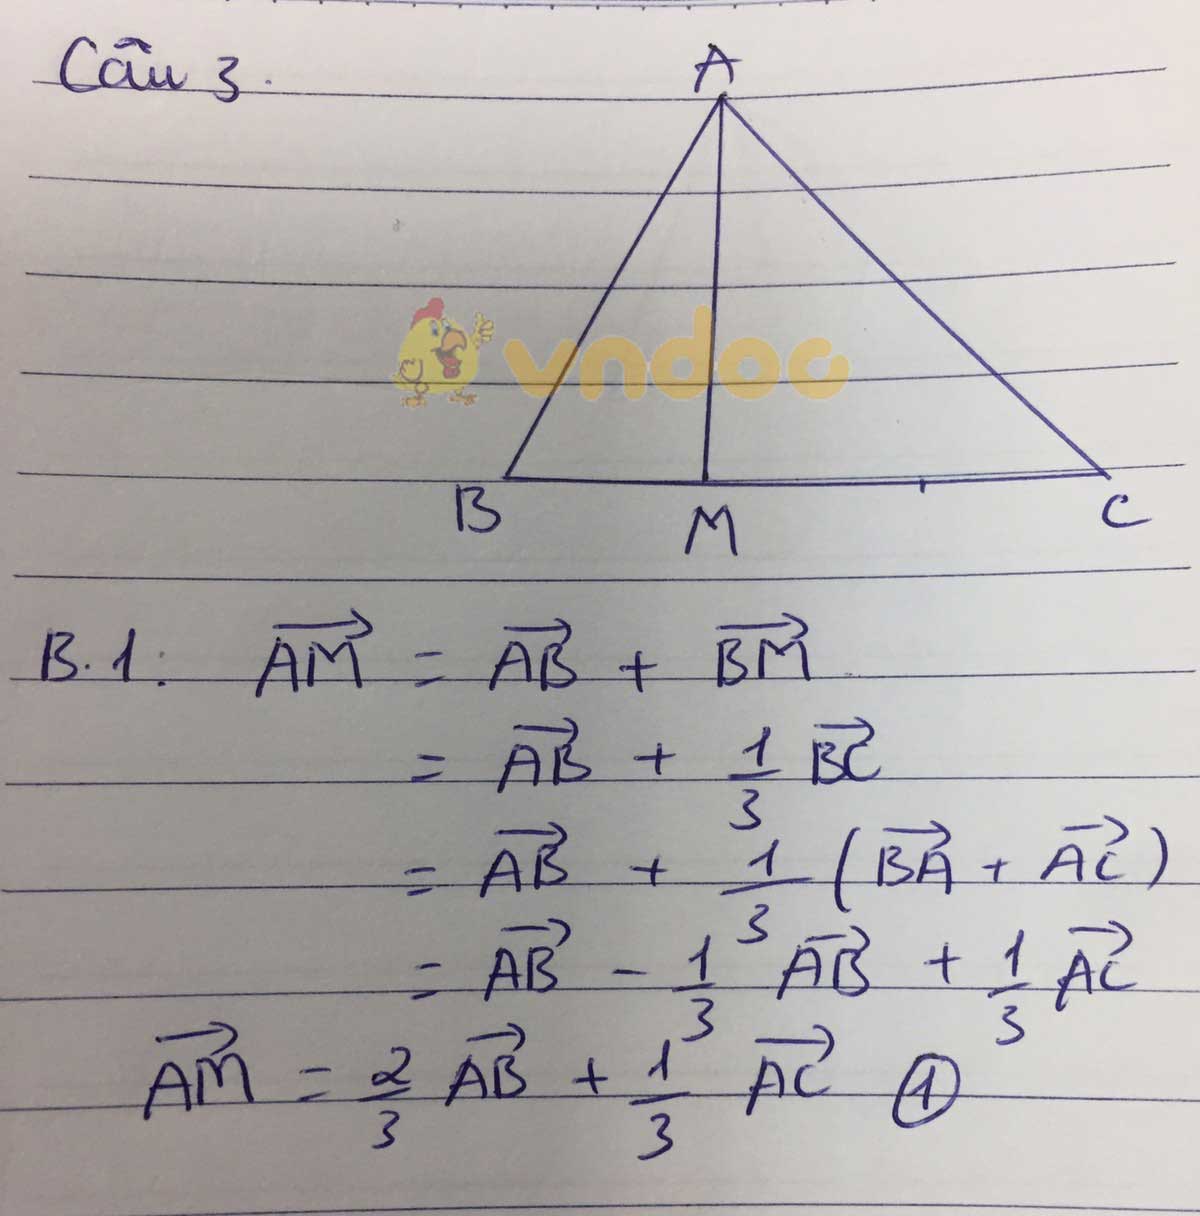 Câu 3.
A
vndoc
B M C
B.1: AM = AB + BM
= AB + 1/3 BC
= AB + 1/3 (BA + AC)
= AB - 1/3 AB + 1/3 AC
AM = 2/3 AB + 1/3 AC ①